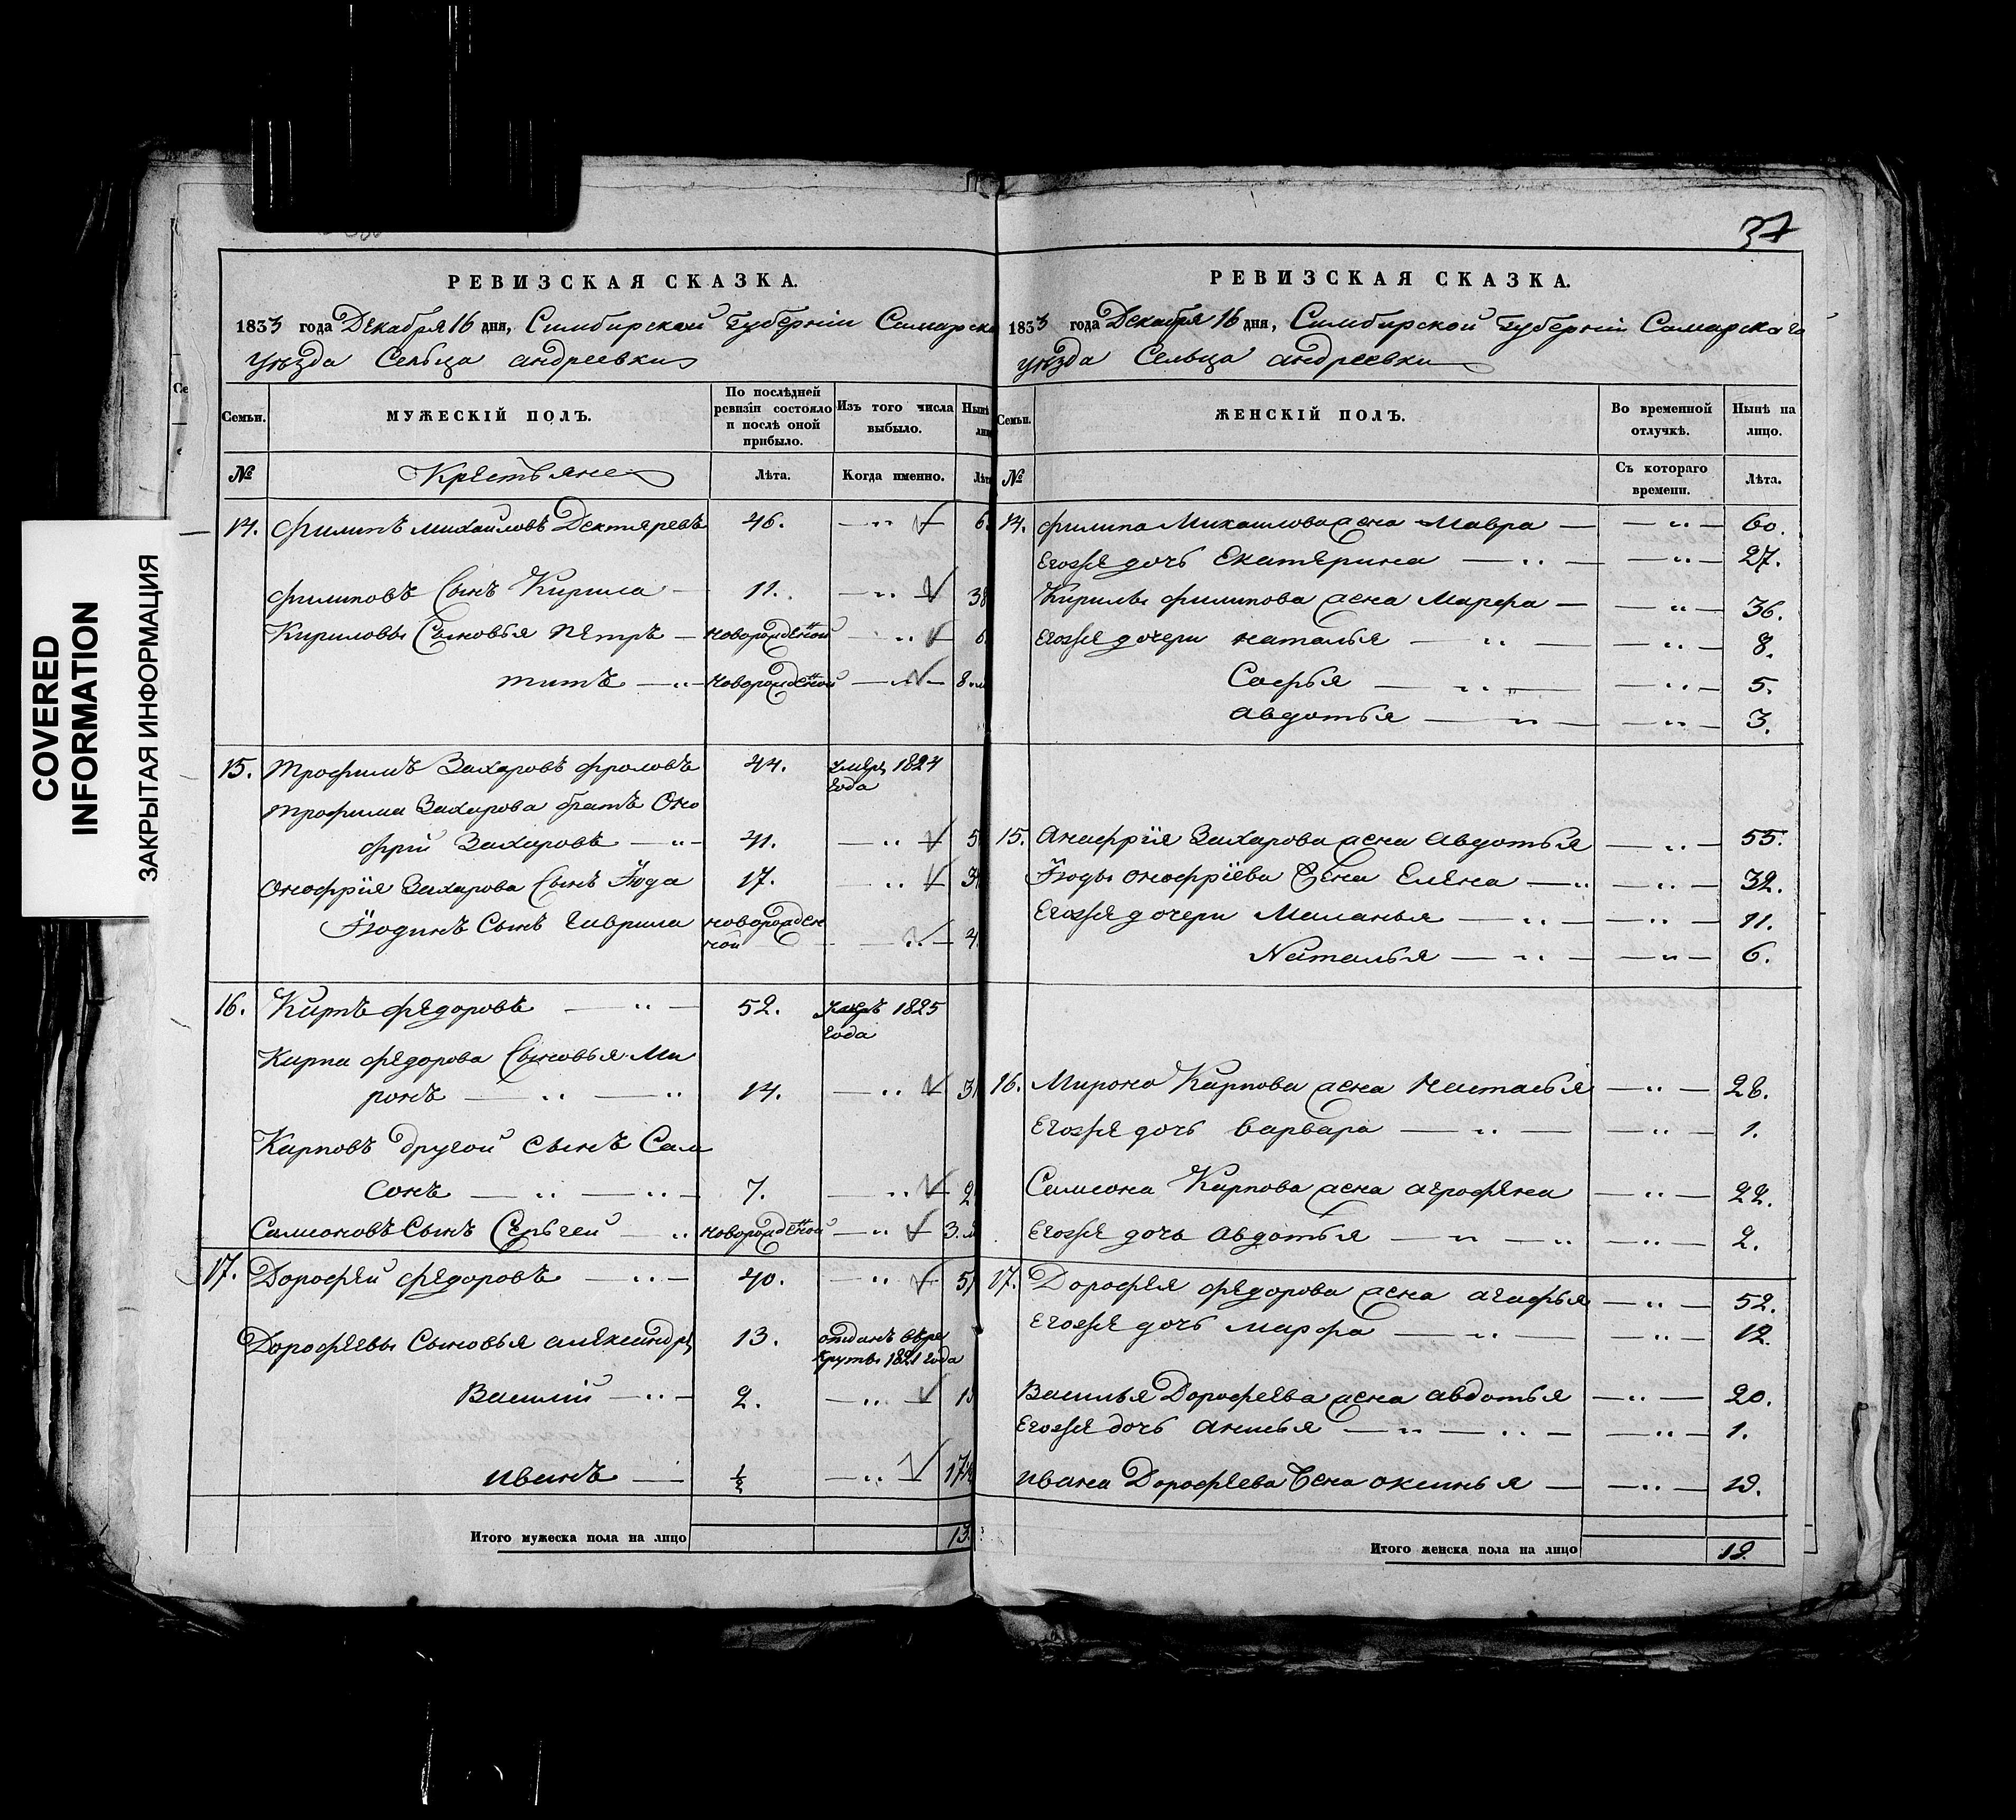 COVERED
INFORMATION
ЗАКРЫТАЯ ИНФОРМАЦИЯ
37
РЕВИЗСКАЯ СКАЗКА.
1833 года Декабря 16 дня, Симбирской Губерніи Самарска
уѣзда Сельца андреевки
Семьи.
МУЖЕСКІЙ ПОЛЪ.
По послѣдней
ревизіи состояло
и послѣ оной
прибыло.
Изъ того числа
выбыло.
Нынѣ
№
Крестьяне
Лѣта.
Когда именно.
Лѣт
14. филипъ михайловъ Дектяревъ 46. — „ —
филиповъ Сынъ Кирила — 11. — „ — 38
Кириловы Сыновья петръ — новорожденной — „ —
титъ — „ — новорожденной — „ — 8.м
15. трофимъ Захаровъ фроловъ 44. умеръ 1824
года
трофима Захарова братъ Оно
фрій Захаровъ — „ — 41. — „ — 5
Онофрія Захарова Сынъ Іюда 17. — „ — 3
Іюдинъ Сынъ Гаврила новорожден
ной — „ — 4
16. Карпъ федоровъ — „ — 52. умеръ 1825
года
Карпа федорова Сыновья Ми
ронъ — „ — „ 14. — „ — 3
Карповъ другой сынъ Сам
сонъ — „ — „ — 7. — „ — 2
Самсоновъ Сынъ Сергей — „ новорожденной — „ — 3.м
17. Дорофей федоровъ — „ — 40. — „ — 5
Дорофеевы Сыновья александръ 13. отданъ въре
круты 1821 года
Василій — „ — 2. — „ — 1
иванъ — 1/2 — „ — 17 1/2
Итого мужеска пола на лицо 13.
РЕВИЗСКАЯ СКАЗКА.
1833 года Декабря 16 дня, Симбирской Губерніи Самарскаго
уѣзда Сельца андреевки
Семьи.
ЖЕНСКІЙ ПОЛЪ.
Во временной
отлучкѣ.
Нынѣ на
лицо.
№
Съ котораго
времени.
Лѣта.
14. филипа Михаилова жена Мавра — — „ — 60.
Егожѣ дочь Екатерина — „ — — „ — 27.
Кирилы филипова жена Марфа — — „ — 36.
Егожѣ дочери наталья — „ — — „ — 8.
Софья — „ — — „ — 5.
авдотья — „ — — „ — 3.
15. Анофрія Захарова жена авдотья — „ — 55.
Іюды онофріева Жена Елена — „ — „ — 32.
Егожѣ дочери Маланья — „ — — „ — 11.
Наталья — „ — — „ — 6.
16. Мирона Карпова жена настасья — „ — 28.
Егожѣ дочь варвара — „ — — „ — 1.
Самсона Карпова жена агрофена — „ — 22.
Егожѣ дочь авдотья — „ — „ — „ — 2.
17. Дорофея федорова жена агафья — „ — 52.
Егожѣ дочь марфа — „ — — „ — 12.
Василья Дорофеева жена авдотья — „ — 20.
Егожѣ дочь анисья — „ — „ — — „ — 1.
ивана Дорофеева Жена оксинья — — „ — 19.
Итого женска пола на лицо 19.